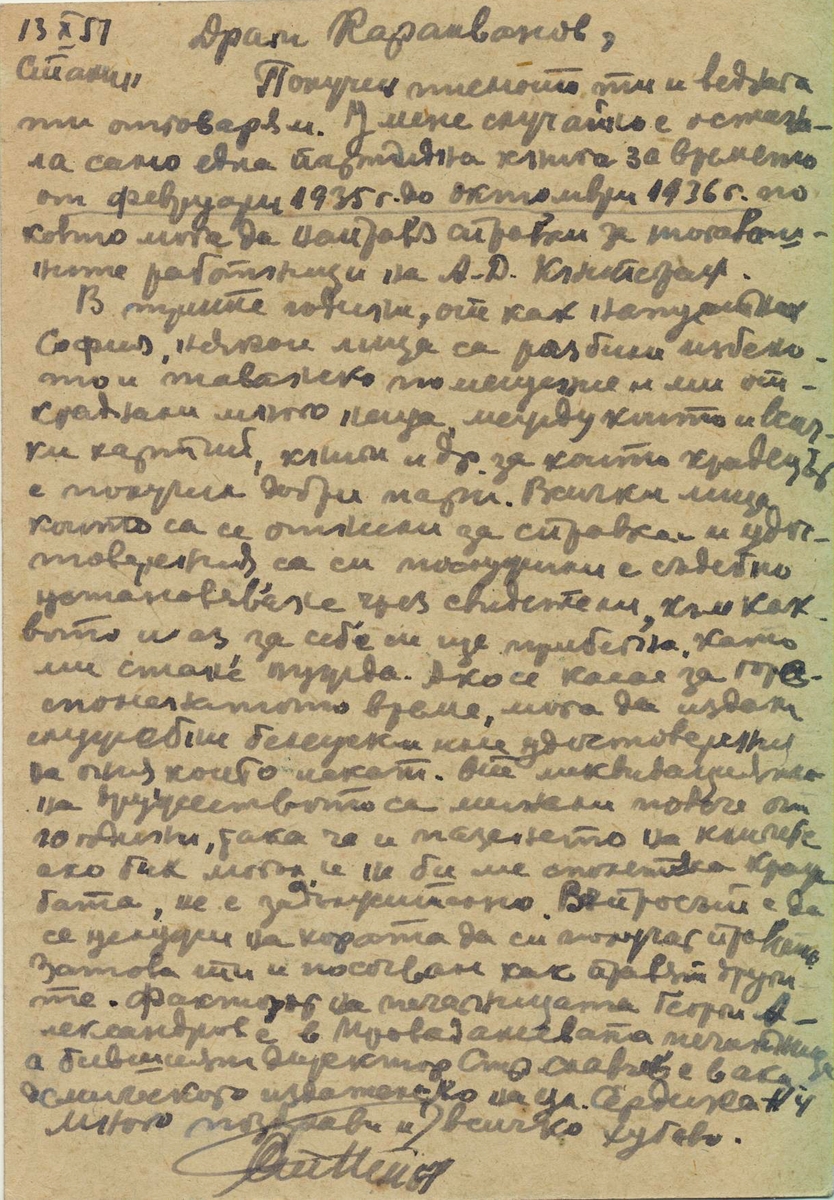 13 X 51 Драги Караиванов,
Стани" Получих писмото ти и веднага
ти отговарям. У мене случайно е остана-
ла само една партидна книга за времето
от февруари 1935 г. до октомври 1936 г. по
която мога да направя справки за тогаваш-
ните работници на А.-Д.
В трите години, от как напуснах
София, някои лица са разбили избено-
то и таванско помещение и ми от-
краднали много неща, между които и всич-
ки хартии, книги и др. за които крадецът
е получил добри пари. Всички лица
които са се отнесли за справка и удос-
товерения са си послужили с съдебно
установяване чрез свидетели, към как-
вото и аз за себе си ще прибегна, като
ми стане нужда. Ако се касае за горе-
споменатото време, мога да издам
служебни бележки или удостоверения
на ония които искат. От ликвидацията
на дружеството са минали повече от
10 години, така че и пазенето на книгите
ако бих могъл и не би ме сполетяла краж
бата, не е задължително. Въпросът е да
се услужи на хората да си получат
Затова ти и посочвам как правят други
те. Факторът на печатницата Георги А-
лександров е в печатница
а бившият директор Стр. е в ака
демическото издателство на ул. Сердика № 4
Много поздрави и всичко хубаво.